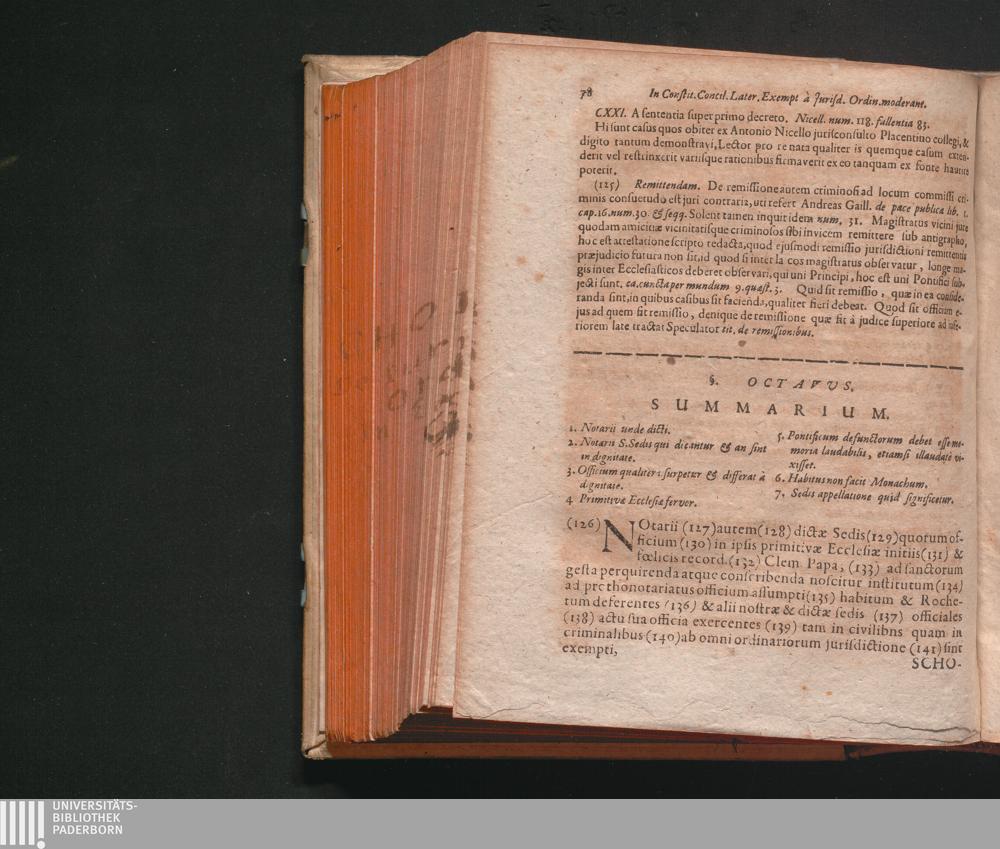 78 In Constit. Concil. Later. Exempt à Jurisd. Ordin. moderant.
CXXI. A sententia super primo decreto. Nicell. num. 118. fallentia 83.
Hi sunt casus quos obiter ex Antonio Nicello jurisconsulto Placentino collegi, &
digito tantum demonstravi, Lector pro re nata qualiter is quemque casum exten-
derit vel restrinxerit variisque rationibus firmaverit ex eo tanquam ex fonte haurire
poterit.
(125) Remittendam. De remissione autem criminosi ad locum commissi cri-
minis consuetudo est juri contraria, uti refert Andreas Gaill. de pace publica lib. 1.
cap. 16. num. 30. & seqq. Solent tamen inquit idem num. 31. Magistratus vicini jure
quodam amicitiæ vicinitatisque criminosos sibi invicem remittere sub antigrapho,
hoc est attestatione scripto redacta, quod ejusmodi remissio jurisdictioni remittentis
præjudicio futura non sit, id quod si inter laicos magistratus observatur, longe ma-
gis inter Ecclesiasticos deberet observari, qui uni Principi, hoc est uni Pontifici sub-
jecti sunt. ca. cuncta per mundum 9. quæst. 3. Quid sit remissio, quæ in ea conside-
randa sint, in quibus casibus sit facienda, qualiter fieri debeat. Quod sit officium e-
jus ad quem fit remissio, denique de remissione quæ fit à judice superiore ad infe-
riorem late tractat Speculator tit. de remissionibus.
§. OCTAVUS.
SUMMARIUM.
1. Notarii unde dicti.
2. Notarii S. Sedis qui dicantur & an sint
in dignitate.
3. Officium qualiter usurpetur & differat à
dignitate.
4 Primitivæ Ecclesiæ fervor.
5. Pontificum defunctorum debet esse me-
moria laudabilis, etiamsi illaudate vi-
xisset.
6. Habitus non facit Monachum.
7. Sedis appellatione quid significetur.
(126) NOtarii (127) autem (128) dictæ Sedis (129) quorum of-
ficium (130) in ipsis primitivæ Ecclesiæ initiis (131) &
fœlicis record. (132) Clem. Papa, (133) ad sanctorum
gesta perquirenda atque conscribenda noscitur institutum (134)
ad prothonotariatus officium assumpti (135) habitum & Roche-
tum deferentes (136) & alii nostræ & dictæ sedis (137) officiales
(138) actu sua officia exercentes (139) tam in civilibns quam in
criminalibus (140) ab omni ordinariorum jurisdictione (141) sint
exempti,
SCHO-
UNIVERSITÄTS-
BIBLIOTHEK
PADERBORN